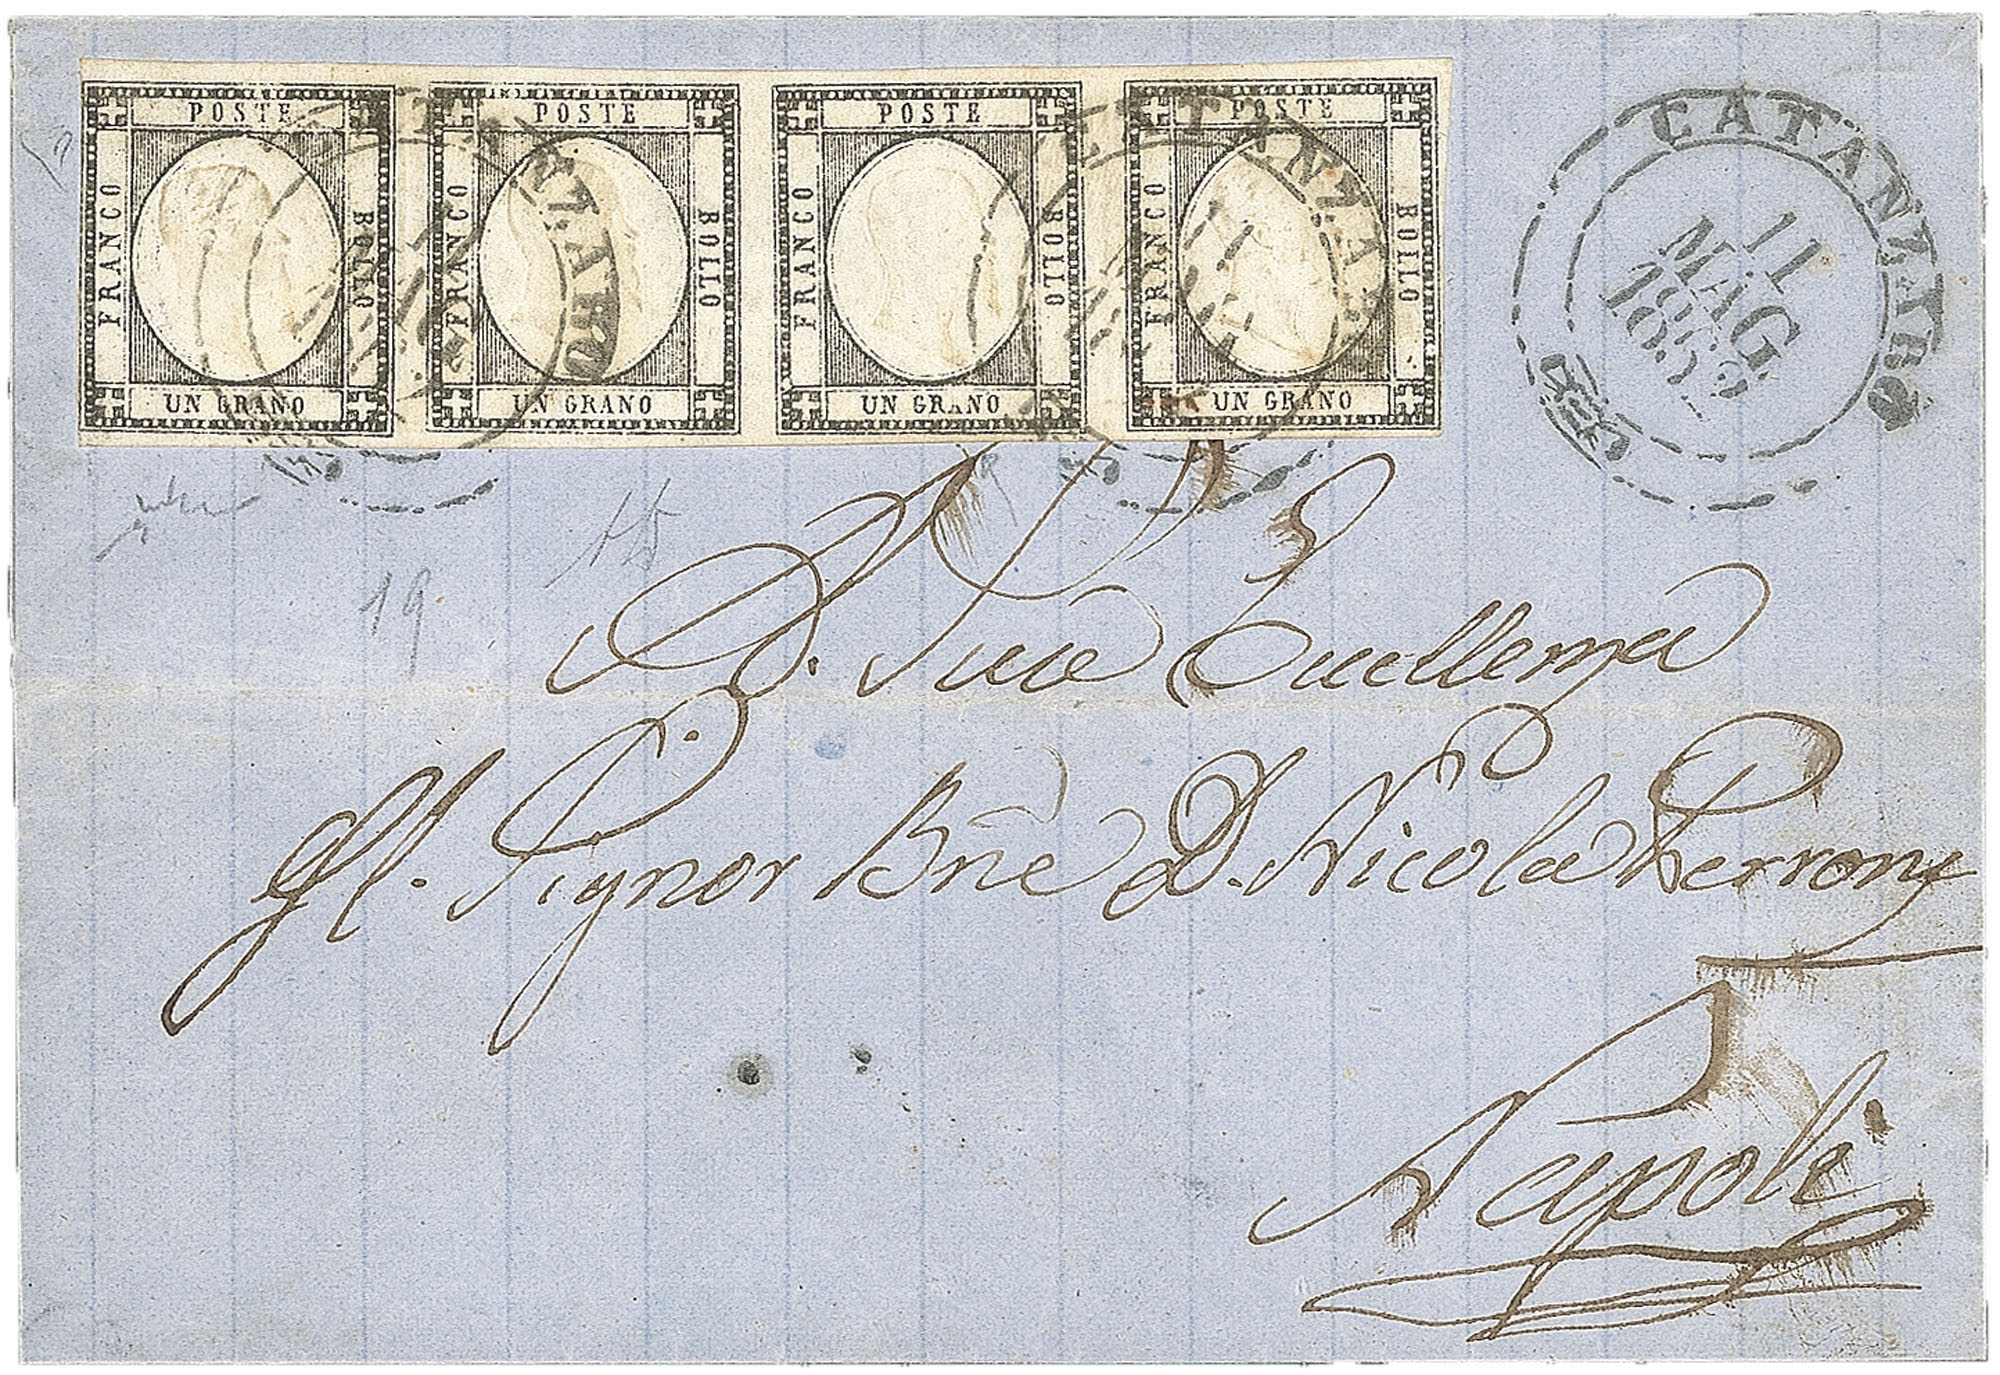 POSTE POSTE POSTE POSTE
FRANCO BOLLO FRANCO BOLLO FRANCO BOLLO FRANCO BOLLO
UN GRANO UN GRANO UN GRANO UN GRANO
CATANZARO
11
MAG
CATANZARO
CATANZARO
19
A. Sua Eccellenza
Il Signor Bne D. Nicola Perrone
Napoli